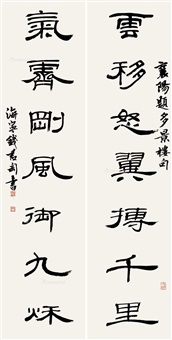 襄陽題多景樓句
雲移怒翼搏千里
氣霽剛風御九秋
海寧錢君匋書